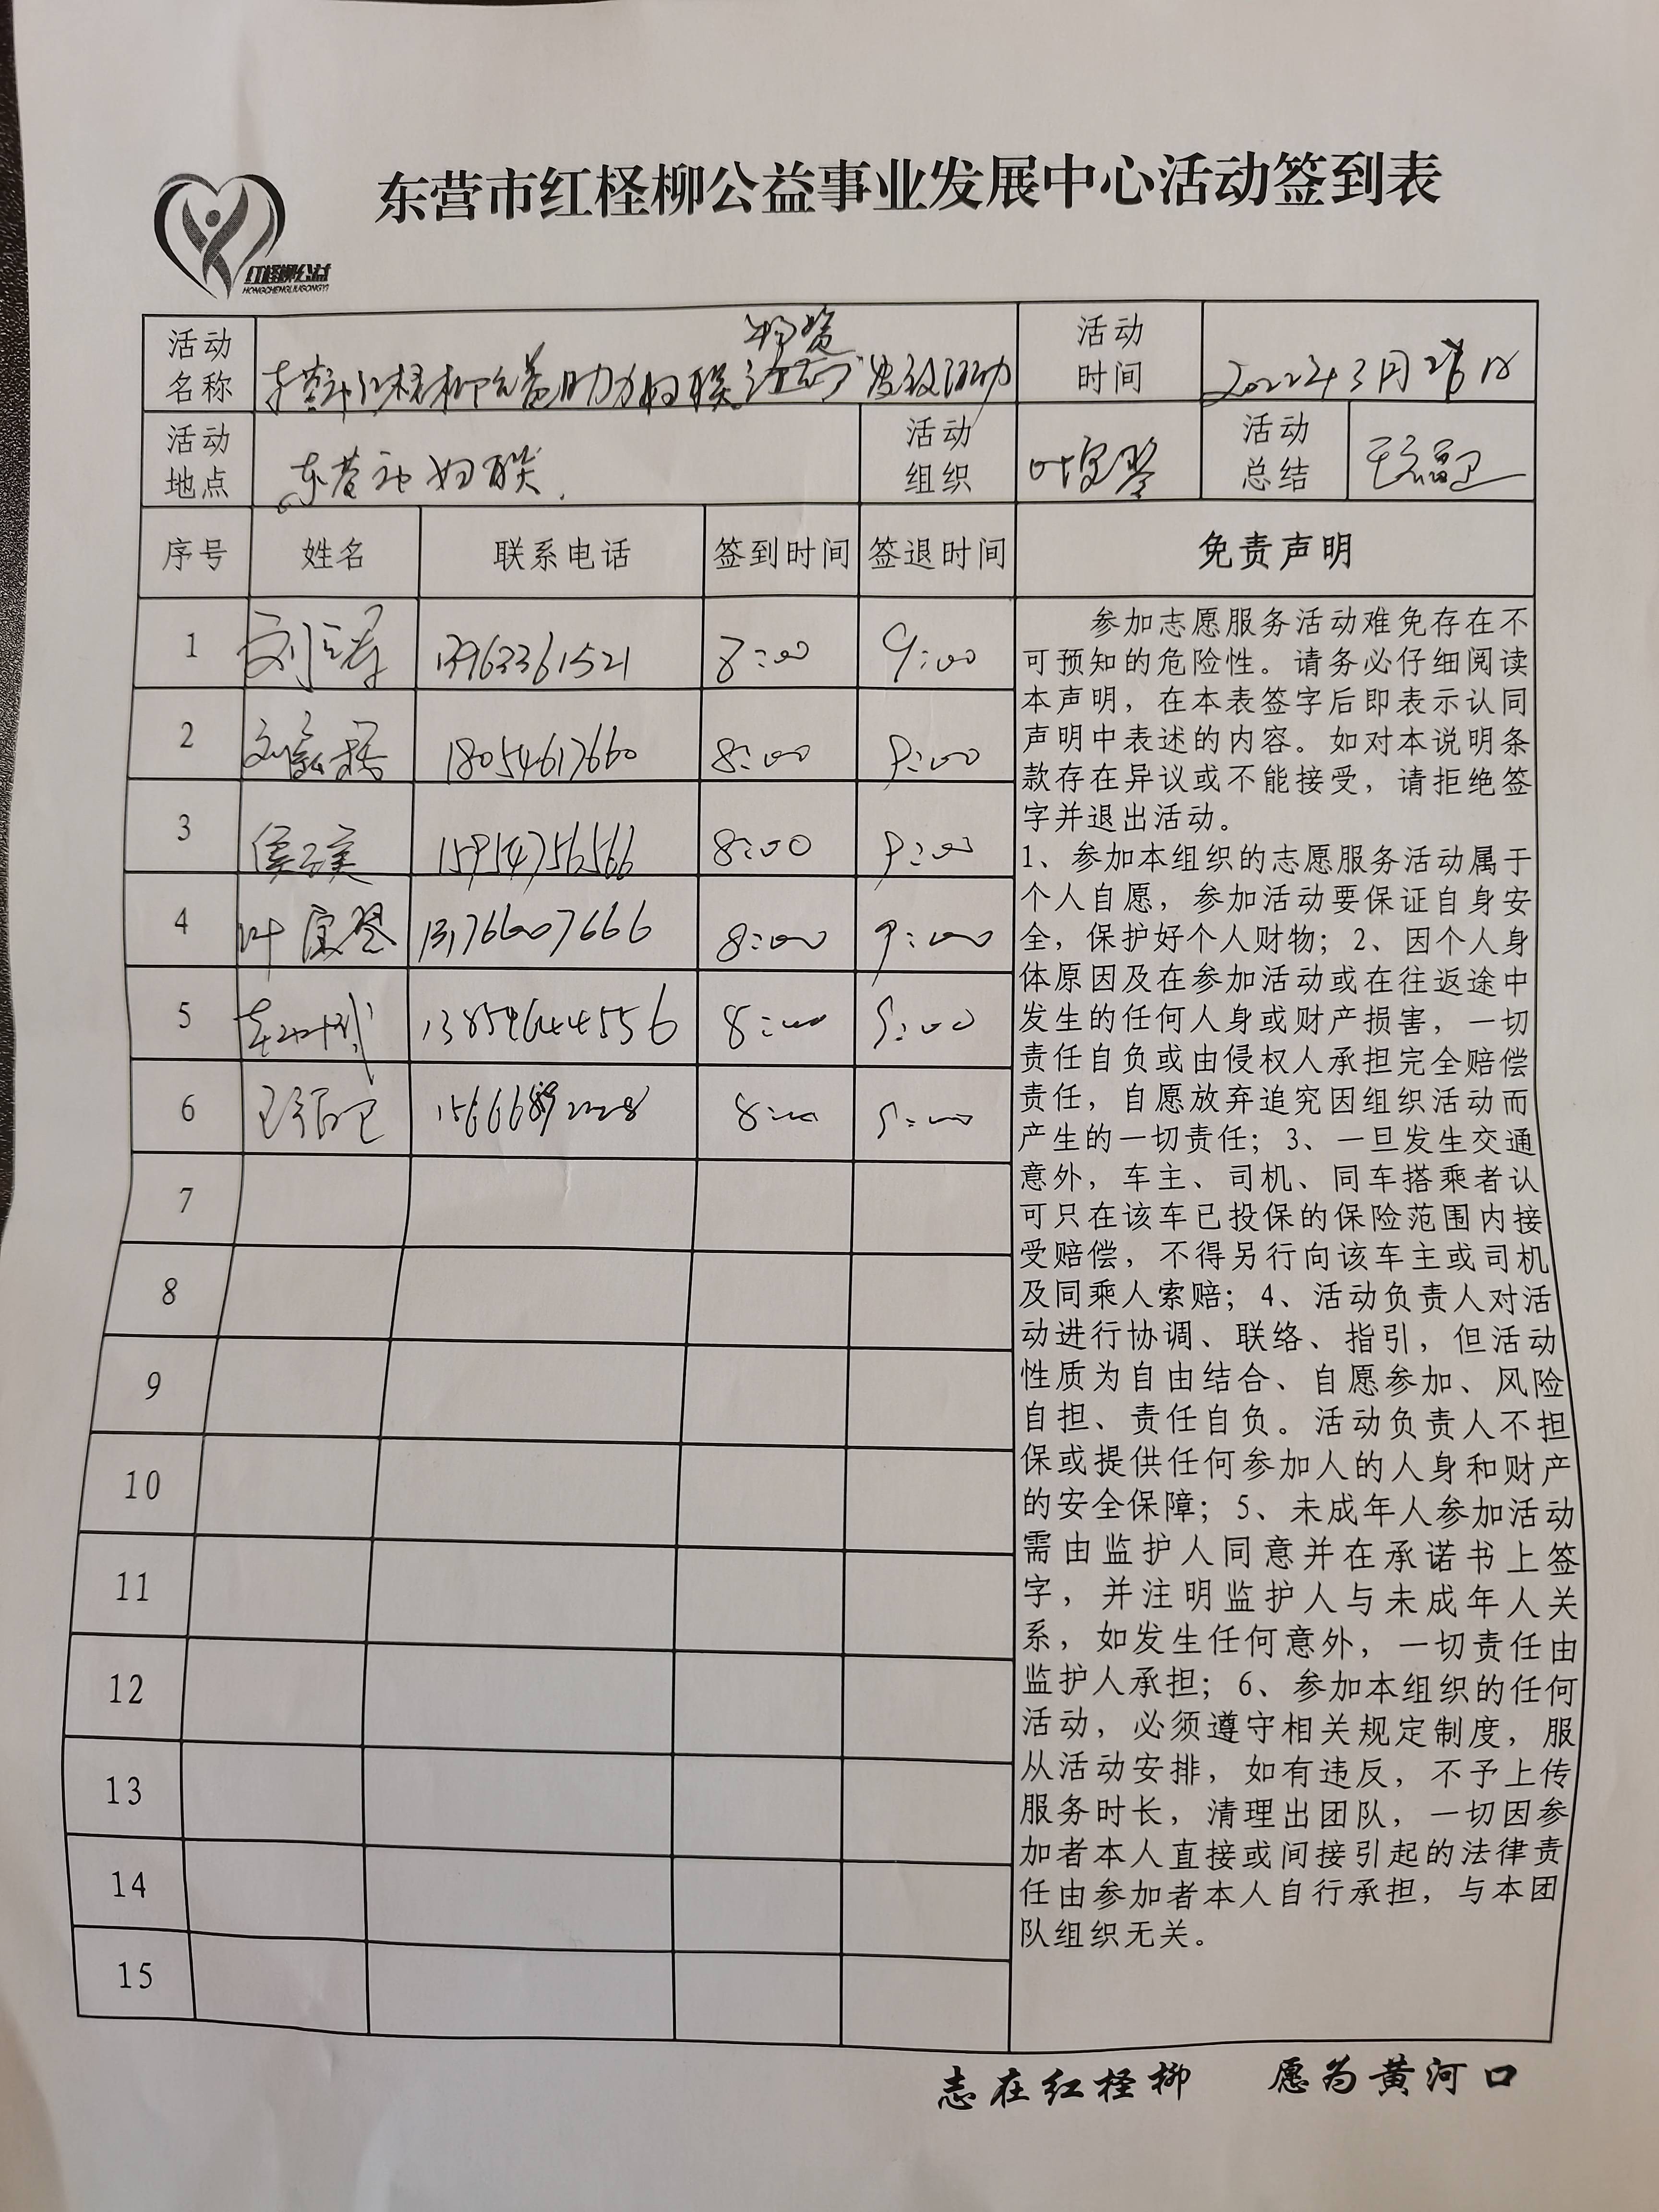 东营市红柽柳公益事业发展中心活动签到表
红柽柳公益
HONGCHENGLIUGONGYI
活动名称 东营市红柽柳公益助力妇联物资发放活动 活动时间 2022年3月26日
活动地点 东营市妇联 活动组织 叶宝翠 活动总结
序号 姓名 联系电话 签到时间 签退时间 免责声明
1 13963361521 8:00 9:00
2 18054617660 8:00 9:00
3 15954756566 8:00 9:00
4 叶宝翠 13176607666 8:00 9:00
5 13854644556 8:00 9:00
6 8:00 9:00
7
8
9
10
11
12
13
14
15
参加志愿服务活动难免存在不
可预知的危险性。请务必仔细阅读
本声明，在本表签字后即表示认同
声明中表述的内容。如对本说明条
款存在异议或不能接受，请拒绝签
字并退出活动。
1、参加本组织的志愿服务活动属于
个人自愿，参加活动要保证自身安
全，保护好个人财物；2、因个人身
体原因及在参加活动或在往返途中
发生的任何人身或财产损害，一切
责任自负或由侵权人承担完全赔偿
责任，自愿放弃追究因组织活动而
产生的一切责任；3、一旦发生交通
意外，车主、司机、同车搭乘者认
可只在该车已投保的保险范围内接
受赔偿，不得另行向该车主或司机
及同乘人索赔；4、活动负责人对活
动进行协调、联络、指引，但活动
性质为自由结合、自愿参加、风险
自担、责任自负。活动负责人不担
保或提供任何参加人的人身和财产
的安全保障；5、未成年人参加活动
需由监护人同意并在承诺书上签
字，并注明监护人与未成年人关
系，如发生任何意外，一切责任由
监护人承担；6、参加本组织的任何
活动，必须遵守相关规定制度，服
从活动安排，如有违反，不予上传
服务时长，清理出团队，一切因参
加者本人直接或间接引起的法律责
任由参加者本人自行承担，与本团
队组织无关。
志在红柽柳 愿为黄河口